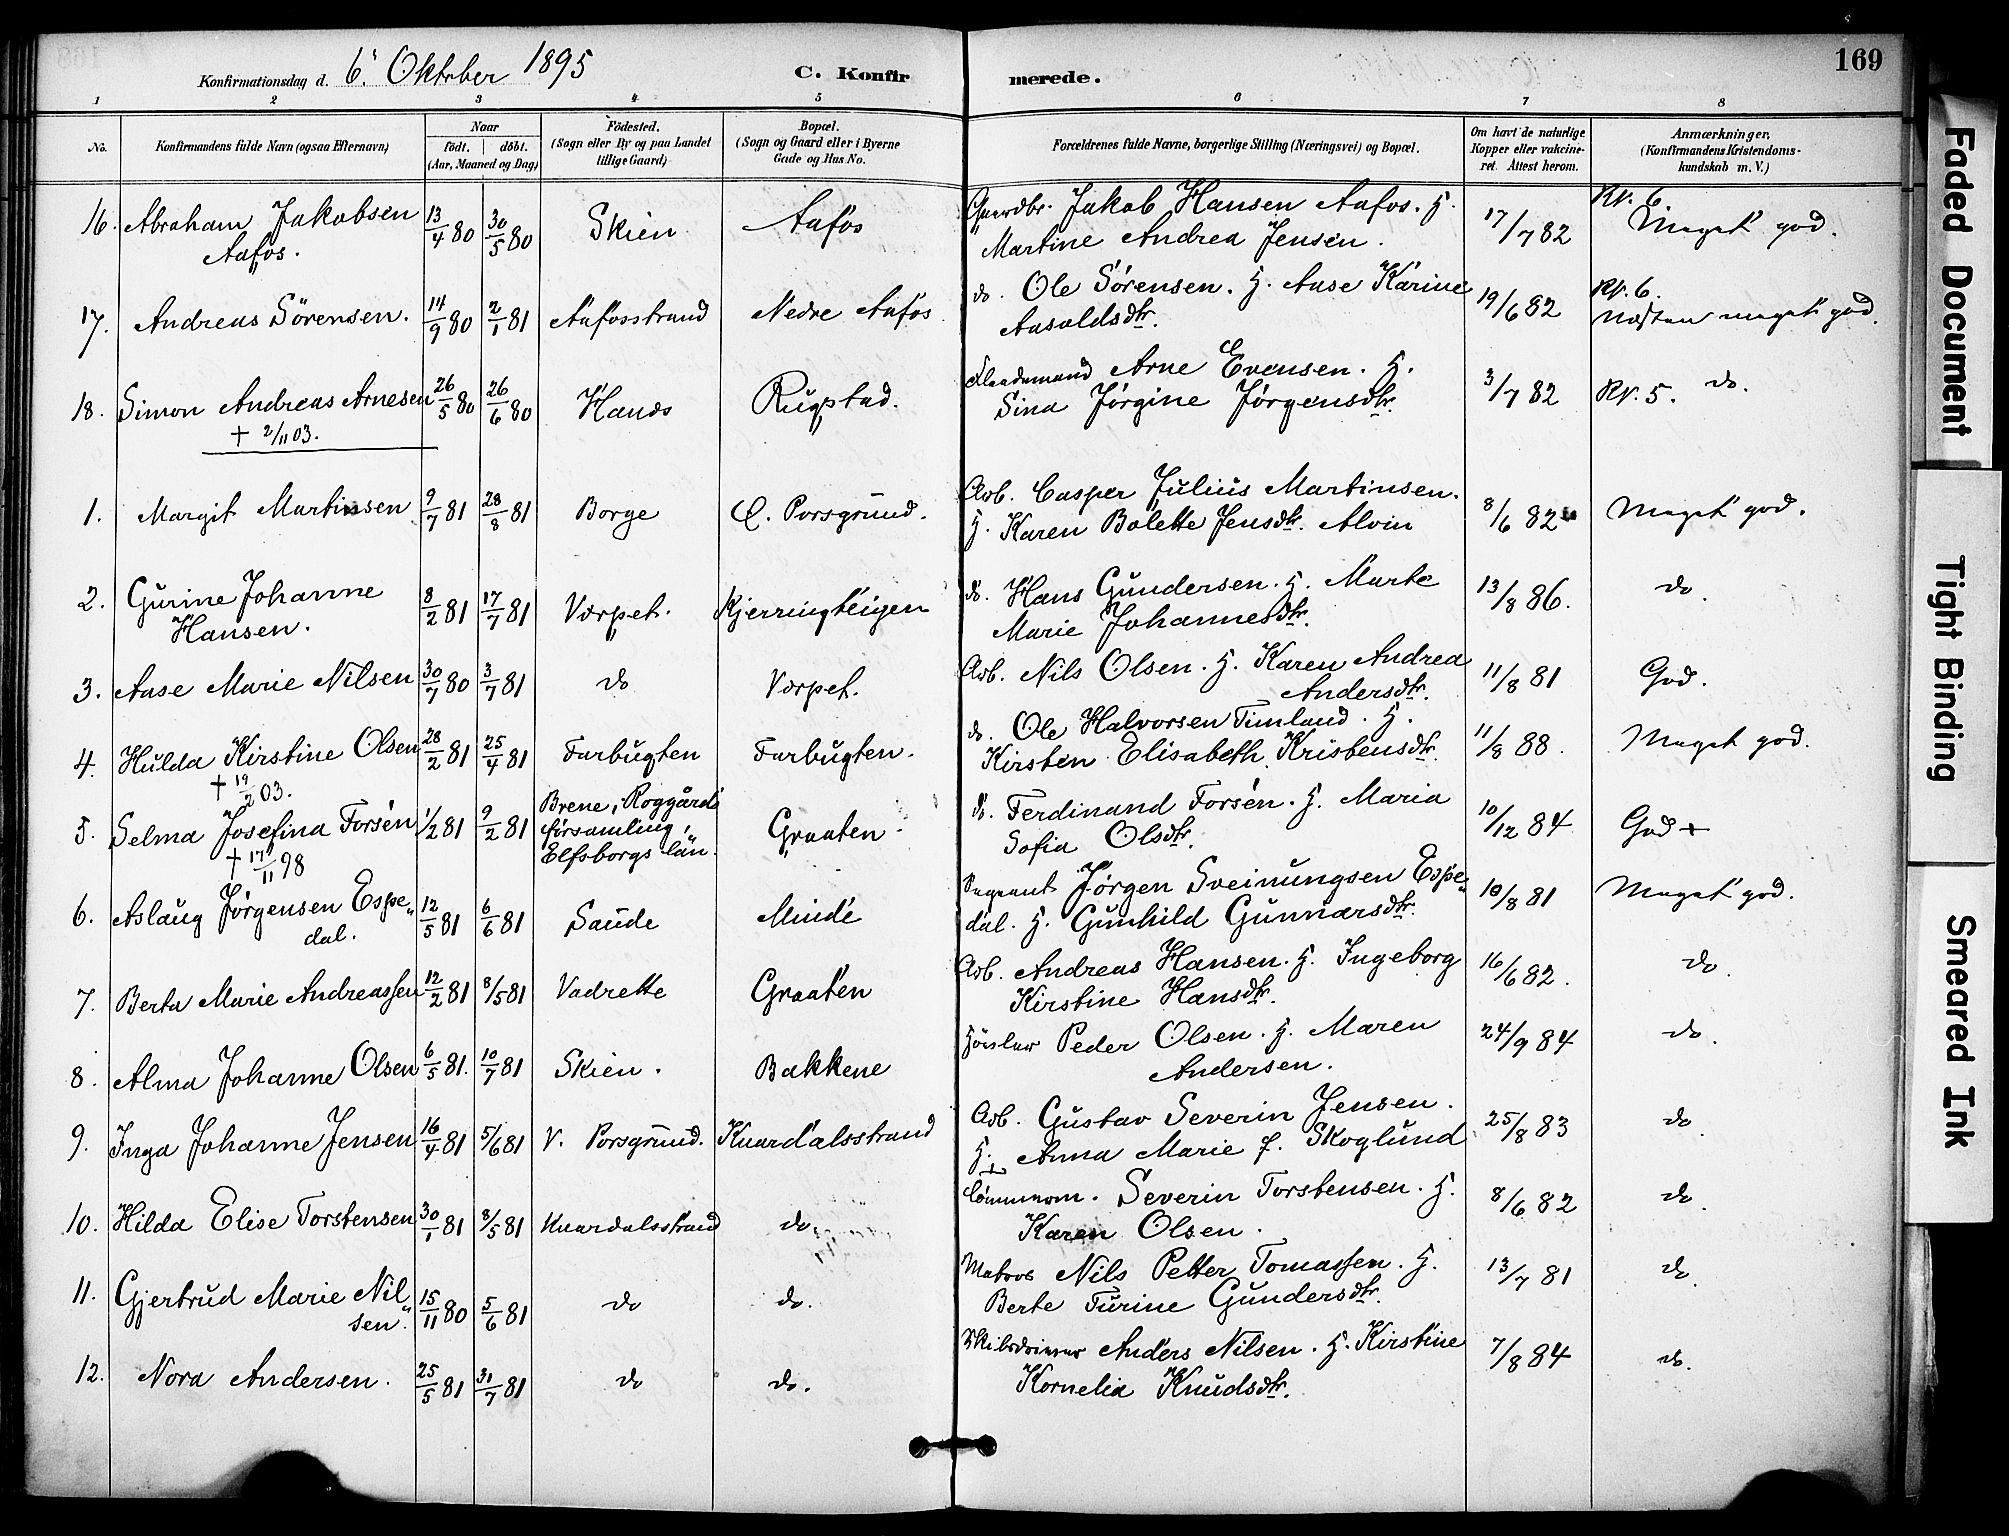 169
Konfirmationsdag d. 6' Oktober 1895
C. Konfirmerede.
1 2 3 4 5 6 7 8
No.
Konfirmandens fulde Navn (ogsaa Efternavn)
Naar
födt. döbt.
(Aar, Maaned og Dag)
Födested.
(Sogn eller By og paa Landet
tillige Gaard)
Bopæl.
(Sogn og Gaard eller i Byerne
Gade og Hus No.
Forældrenes fulde Navne, borgerlige Stilling (Næringsvei) og Bopæl.
Om havt de naturlige
Kopper eller vakcine-
ret. Attest herom.
Anmærkninger,
(Konfirmandens Kristendoms-
kundskab m. V.)
16. Abraham Jakobsen 13/4 80 30/5 80 Skien Aafos Gaardbr. Jakob Hansen Aafos. H. 17/7 82 Kv. 6.
Aafos. Martine Andrea Jensen. Meget god.
17. Andreas Sörensen. 14/9 80 2/1 81 Aafosstrand Nedre Aafos do. Ole Sörensen. H. Aase Karine 19/6 82 Kv. 6.
Aasoldsdtr. Næsten meget god.
18. Simon Andreas Arnesen 26/5 80 26/6 80 Hanås Rugstad. Arne Evensen. H. 3/7 82 Kv. 5. do.
+ 2/11 03. Sina Jørgine Jørgensdtr.
1. Margit Martinsen 9/7 81 28/8 81 Borge Ø. Porsgrund. Arb. Casper Julius Martinsen. 8/6 82 Meget god.
H. Karen Bolette Jensdtr. Alvin
2. Gurine Johanne 8/2 81 17/7 81 Vorpet. Kjerringteigen do. Hans Gundersen. H. Marte 13/8 86. do.
Hansen. Marie Johannesdtr.
3. Aase Marie Nilsen 30/7 80 3/7 81 do Vorpet. Arb. Nils Olsen. H. Karen Andrea 11/8 81 God.
Andersdtr.
4. Hulda Kirstine Olsen 28/2 81 25/4 81 Farbugten Farbugten. do. Ole Halvorsen Timland. H. 11/8 88. Meget god.
+ 19/2 03. Kirsten Elisabeth Kristensdtr.
5. Selma Josefina Forsén 1/2 81 9/2 81 Brene, Roggårds Graaten do. Ferdinand Forsén. H. Maria 10/12 84 God +
+ 17/11 98 församling, Sofia Olsdtr.
Elfsborgs län.
6. Aslaug Jørgensen Espe„ 12/5 81 6/6 81 Saude Minde Sergeant Jørgen Sveinungsen Espe„ 10/8 81 Meget god.
dal. dal. H. Gunhild Gunnarsdtr.
7. Berta Marie Andreassen 12/2 81 8/5 81 Vadrette Graaten Arb. Andreas Hansen. H. Ingeborg 16/6 82. do.
Kirstine Hansdtr.
8. Alma Johanne Olsen 6/5 81. 10/7 81 Skien. Bakkene Peder Olsen. H. Maren 24/9 84 do.
Andersen.
9. Inga Johanne Jensen 16/4 81 5/6 81 V. Porsgrund. Knardalsstrand Arb. Gustav Severin Jensen. 25/8 83 do.
H. Anna Marie f. Skoglund
10. Hilda Elise Torstensen 30/1 81 8/5 81 Knardalsstrand do. Tömmerm. Severin Torstensen. H. 8/6 82 do.
Karen Olsen.
11. Gjertrud Marie Nil„ 15/11 80 5/6 81 do do. Matros Nils Petter Tomassen. H. 13/7 81 do.
sen. Berte Turine Gundersdtr.
12. Nora Andersen. 25/5 81 31/7 81 do do. Anders Nilsen. H. Kirstine 7/8 84 do.
Kornelia Knudsdtr.
Faded Document
Tight Binding
Smeared Ink